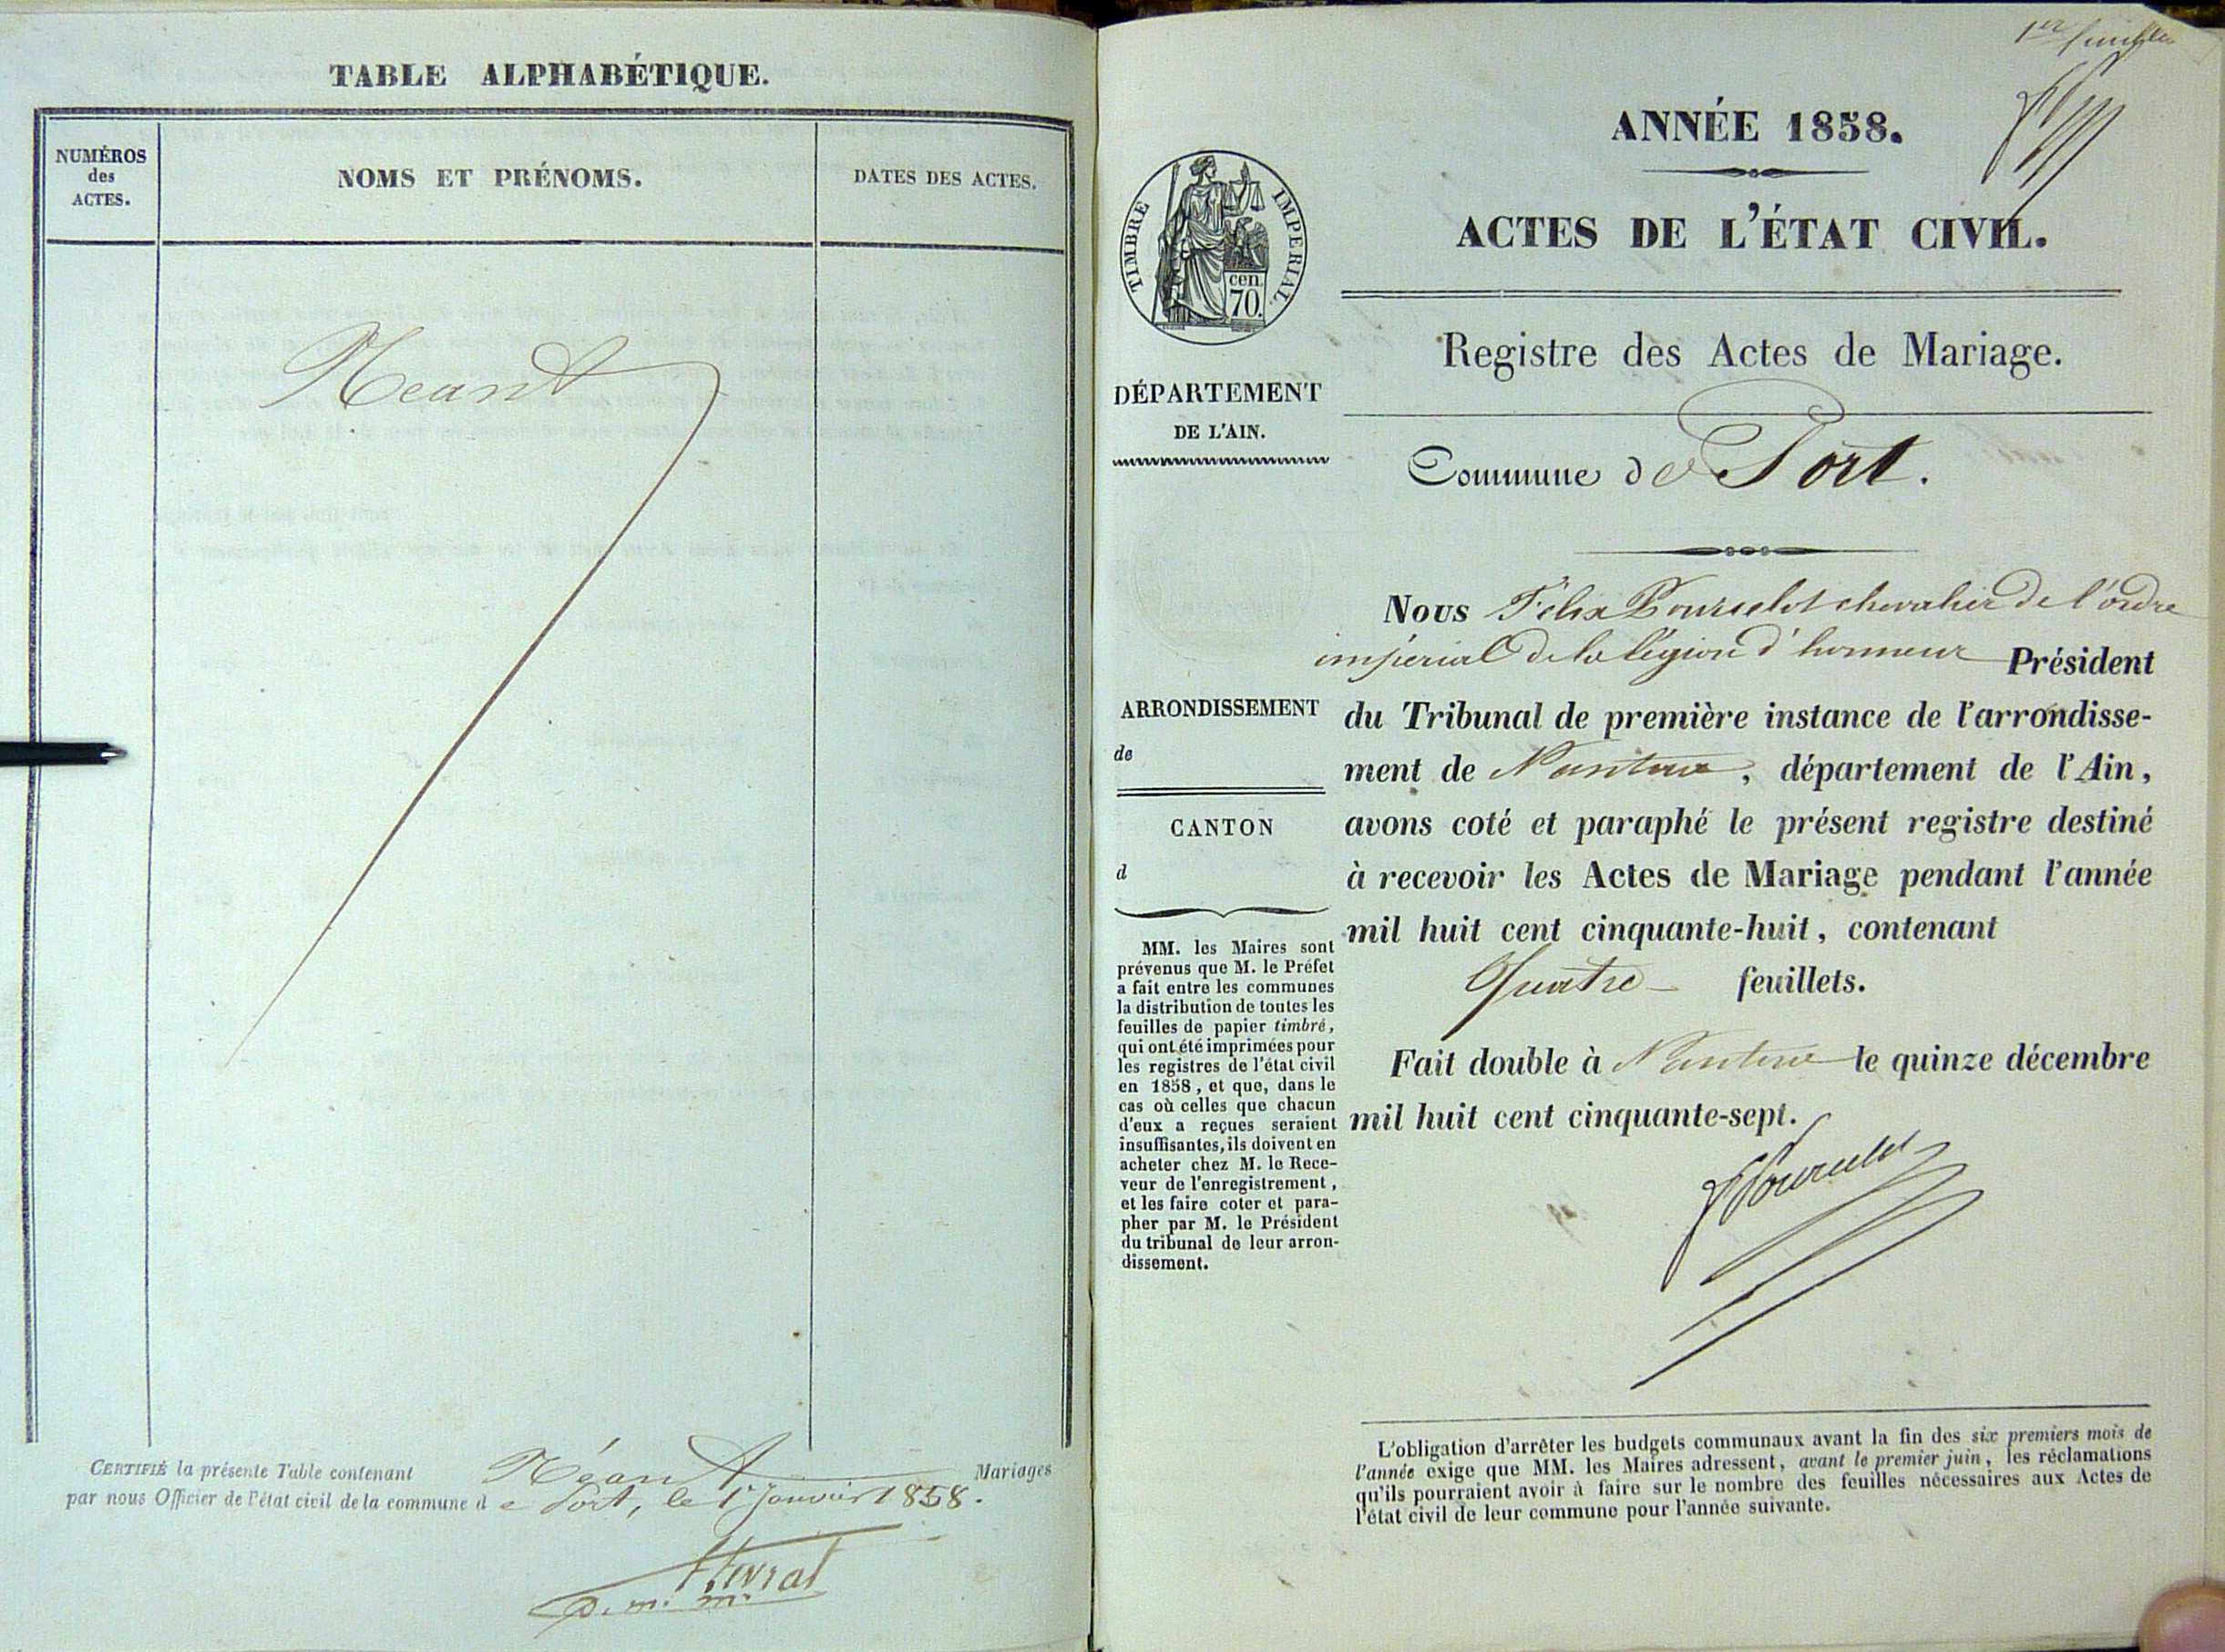 TABLE ALPHABÉTIQUE.
NUMÉROS
des
ACTES.
NOMS ET PRÉNOMS.
DATES DES ACTES.
Neant
CERTIFIÉ la présente Table contenant Néant Mariages
par nous Officier de l'état civil de la commune de Port, le 1r Janvier 1858.
1er feuillet
ANNÉE 1858.
ACTES DE L'ÉTAT CIVIL.
TIMBRE IMPERIAL.
cen.
70.
Registre des Actes de Mariage.
DÉPARTEMENT
DE L'AIN.
Commune de Port.
Nous Félix Bourcelot chevalier de l'ordre
impérial de la légion d'honneur Président
du Tribunal de première instance de l'arrondisse-
ment de Nantua, département de l'Ain,
avons coté et paraphé le présent registre destiné
à recevoir les Actes de Mariage pendant l'année
mil huit cent cinquante-huit, contenant
Quatre feuillets.
Fait double à Nantua le quinze décembre
mil huit cent cinquante-sept.
ARRONDISSEMENT
de
CANTON
d
MM. les Maires sont
prévenus que M. le Préfet
a fait entre les communes
la distribution de toutes les
feuilles de papier timbré,
qui ont été imprimées pour
les registres de l'état civil
en 1858, et que, dans le
cas où celles que chacun
d'eux a reçues seraient
insuffisantes, ils doivent en
acheter chez M. le Rece-
veur de l'enregistrement,
et les faire coter et para-
pher par M. le Président
du tribunal de leur arron-
dissement.
L'obligation d'arrêter les budgets communaux avant la fin des six premiers mois de
l'année exige que MM. les Maires adressent, avant le premier juin, les réclamations
qu'ils pourraient avoir à faire sur le nombre des feuilles nécessaires aux Actes de
l'état civil de leur commune pour l'année suivante.